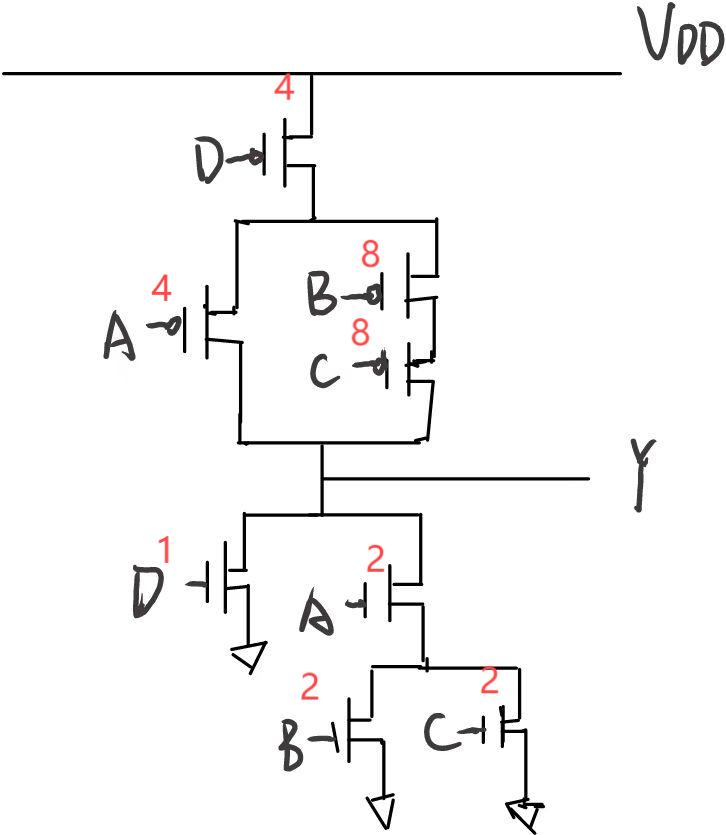 VDD
4
D
8
B
4
A
8
C
Y
1
D
2
A
2
B
2
C